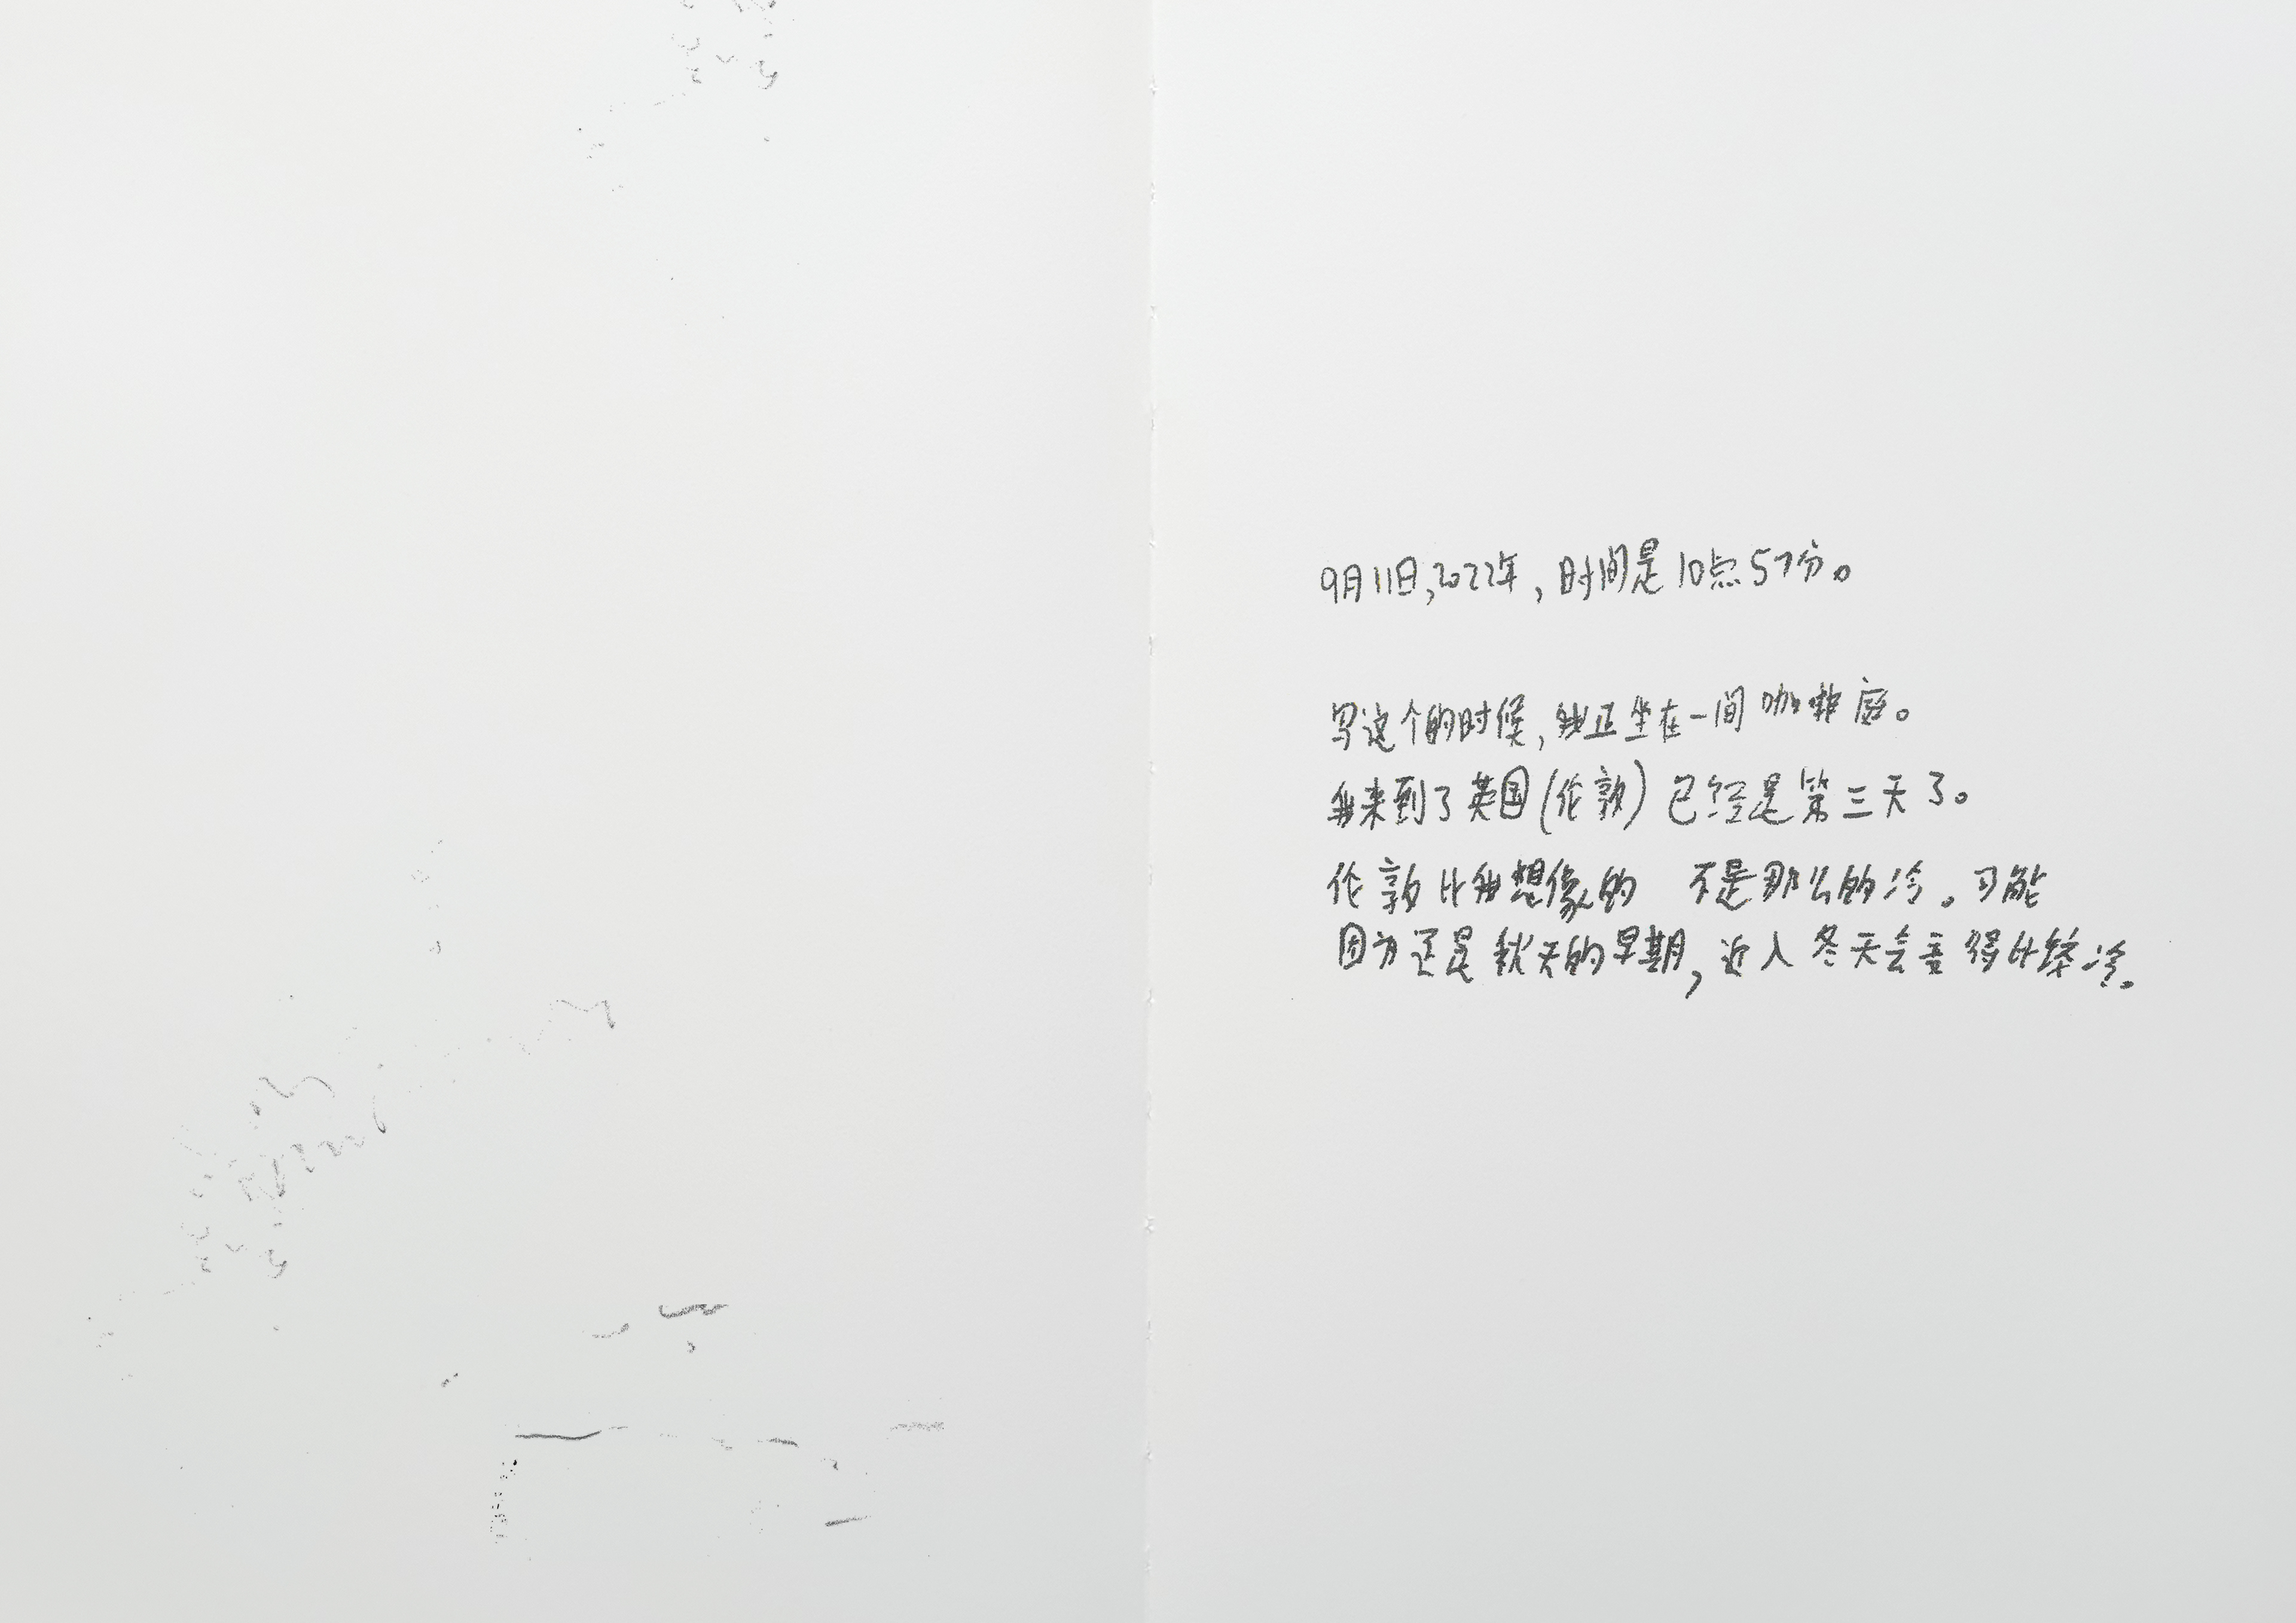 9月11日,2022年,时间是10点57分。
写这个的时候,我正坐在一间咖啡店。
我来到了英国(伦敦)已经是第三天了。
伦敦比我想像的 不是那么的冷。可能
因为还是秋天的早期,近入冬天会变得比较冷。